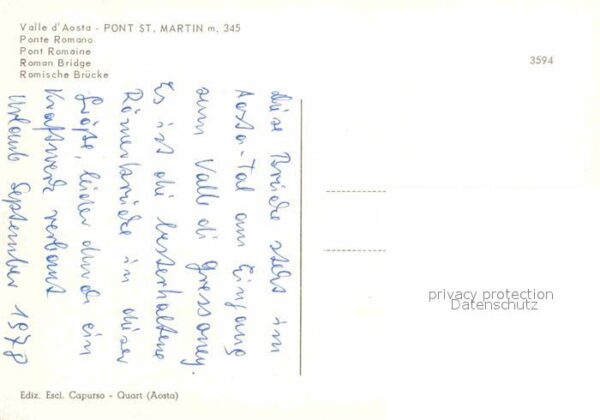 Valle d'Aosta - PONT ST. MARTIN m. 345
Ponte Romano
Pont Romaine
Roman Bridge
Römische Brücke
3594
diese Brücke steht im
Aosta-Tal am Eingang
zum Valle di Gressoney.
Es ist die besterhaltene
Römerbrücke in dieser
Größe, leider durch ein
Kraftwerk verbaut
Urlaub September 1978
privacy protection
Datenschutz
Ediz. Escl. Capurso - Quart (Aosta)